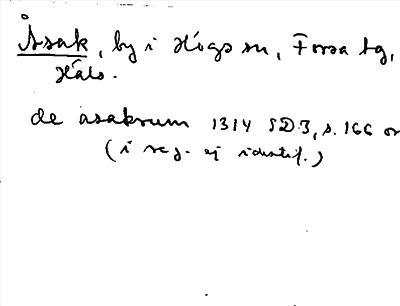 Åsak, by i Högs sn, Forsa tg,
Häls.
de asakrum 1314 SD3, s. 166 or
(i reg. ej identif.)